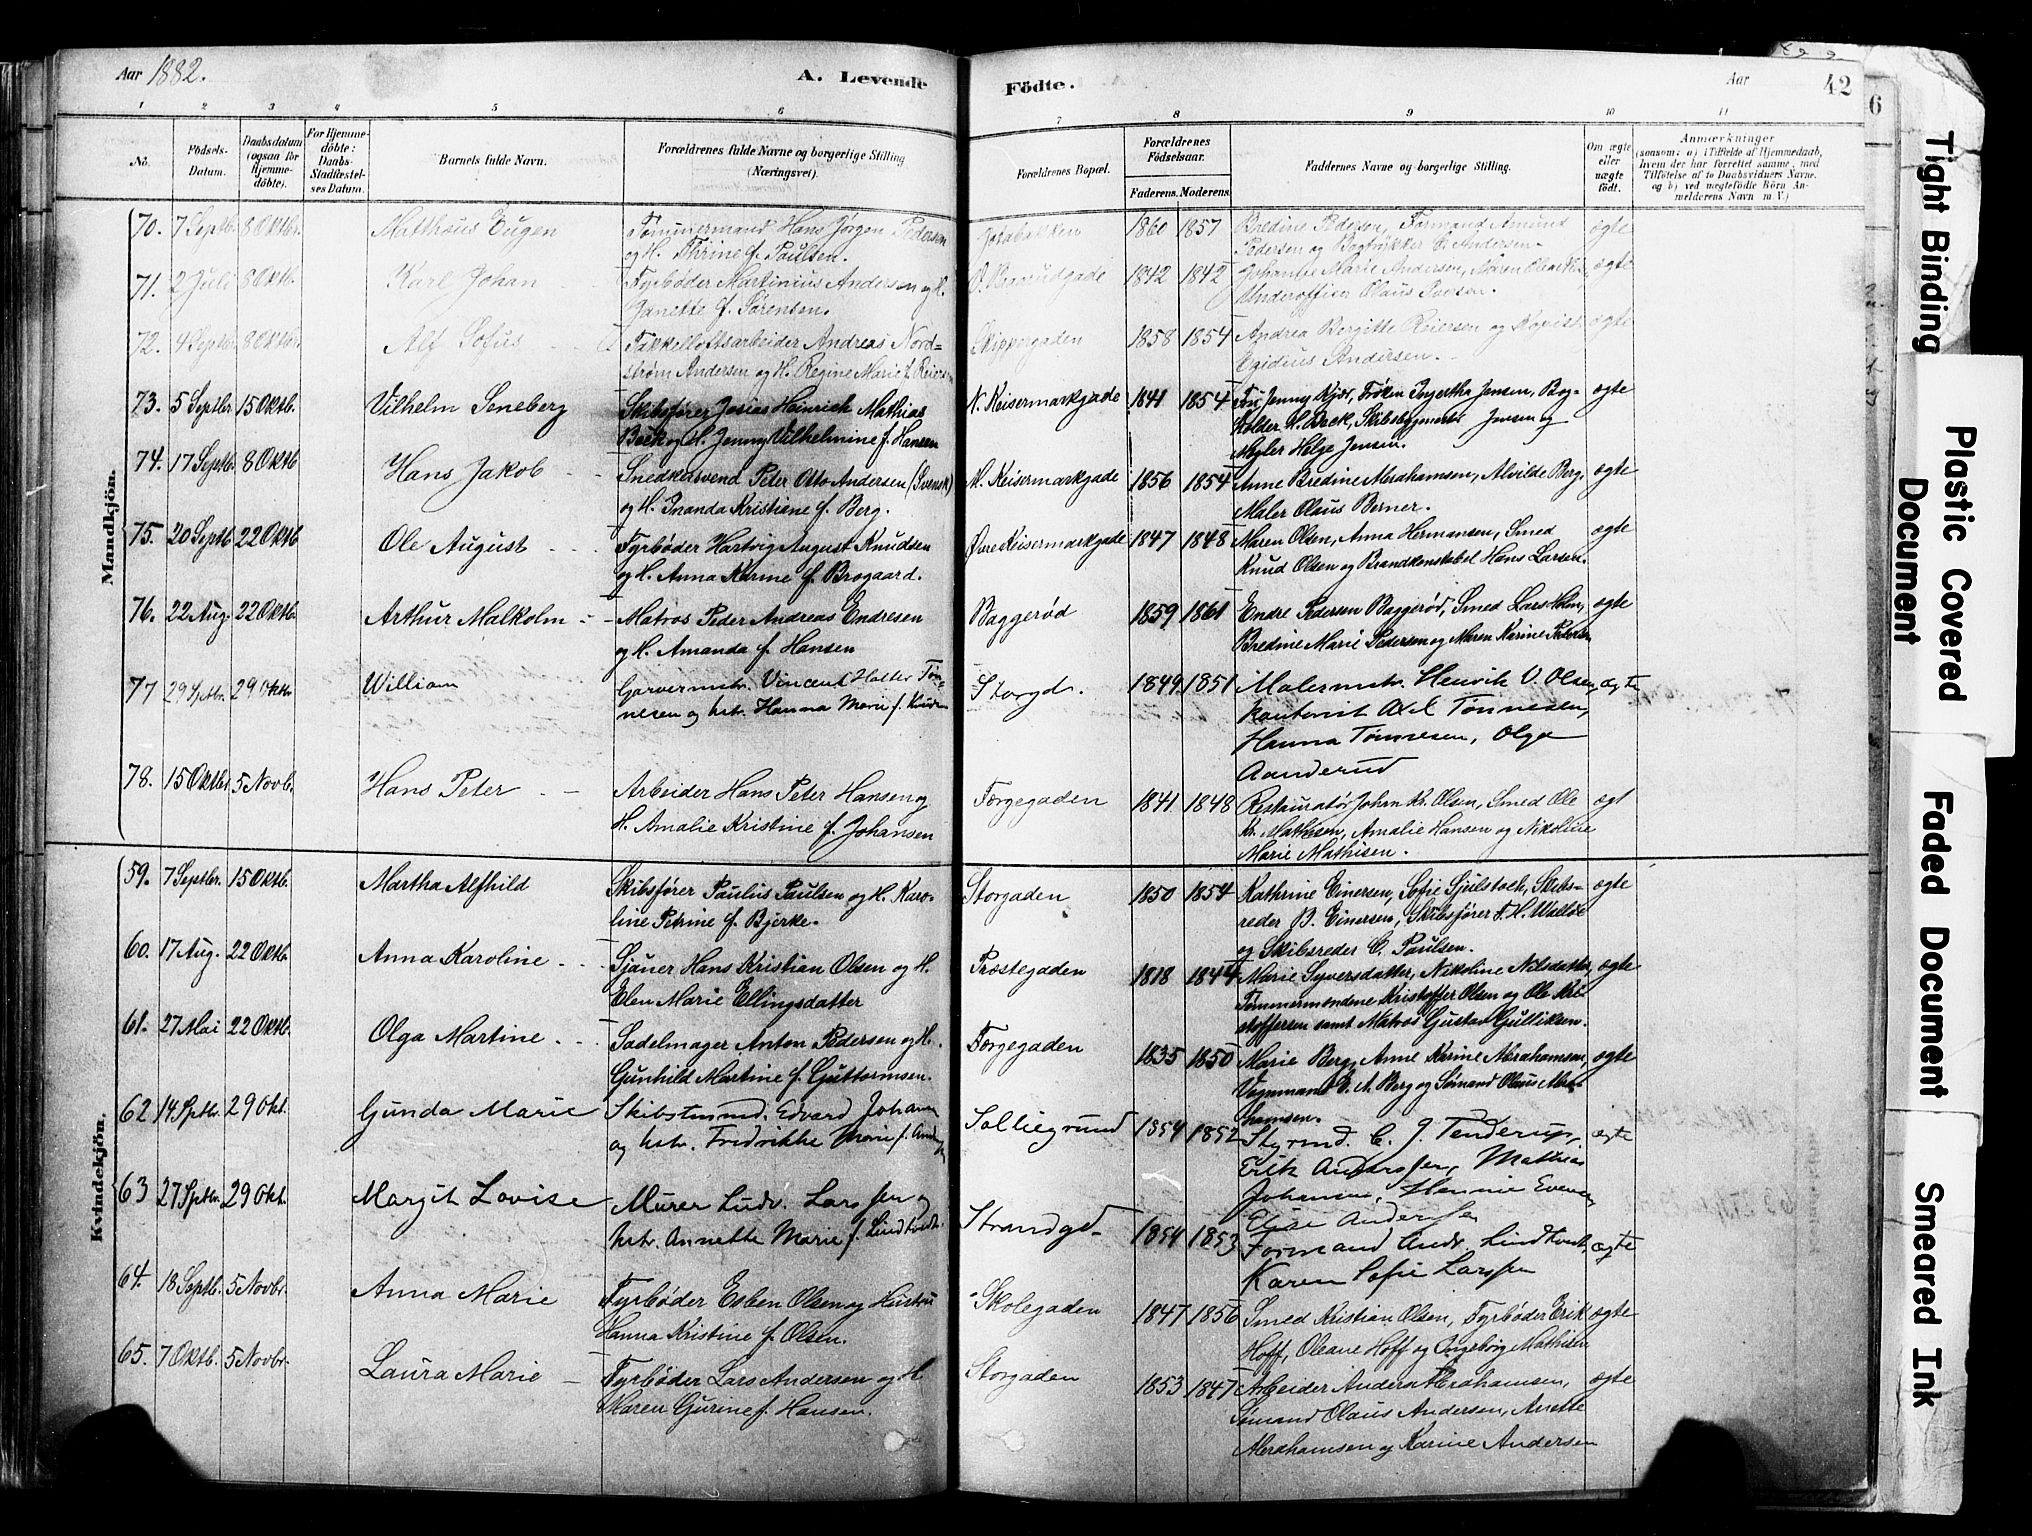 Aar 1882.
A. Levende
1 2 3 4 5 6
No.
Födsels-
Datum.
Daabsdatum
(ogsaa for
Hjemme-
döbte).
For Hjemme-
döbte:
Daabs-
Stadfæstel-
ses Datum.
Barnets fulde Navn.
Forældrenes fulde Navne og borgerlige Stilling
(Næringsvei).
Mandkjön.
70. 7 Septbr. 8 Oktbr. Matthæus Eugen
Tømmermand Hans Jørgen Pedersen
og H. Thrine f. Paulsen.
71. 2 Juli 8 Oktbr. Karl Johan
Fyrbøder Martinius Andersen og H.
Janette f. Sørensen.
72. 4 Septbr 8 Oktbr. Alf Sofus
Takkelloftsarbeider Andreas Nord-
strøm Andersen og H. Regine Marie f. Reiersen
73. 5 Septbr 15 Oktb. Vilhelm Seneberg
Skibsfører Josias Heinrich Mathias
Beck og H. Jenny Vilhelmine f. Hansen
74. 17 Septb. 8 Oktb Hans Jakob
Snedkersvend Peter Otto Andersen (Svensk)
og H. Inanda Kristiane f. Berg.
75. 20 Septb 22 Oktb Ole August
Fyrbøder Hartvig August Knudsen
og H. Anna Karine f. Brogaard.
76. 22 Aug. 22 Oktb. Arthur Malkolm
Matros Peder Andreas Endresen
og H. Amanda f. Hansen
77 29 Sptbr. 29 Oktbr William
Garvermstr. Vincent Halter Tøn-
nesen og hstr. Hanna Marie f. Knudsen
78. 15 Oktbr 5 Novb. Hans Peter
Arbeider Hans Peter Hansen og
H. Amalie Kristine f. Johansen
Kvindekjön.
59. 7 Septbr. 15 Oktb. Martha Alfhild
Skibsfører Paulus Paulsen og H. Karo-
line Petrine f. Bjerke.
60. 17 Aug. 22 Oktb. Anna Karoline
Sjauer Hans Kristian Olsen og H.
Elen Marie Ellingsdatter
61. 27 Mai 22 Oktb. Olga Martine
Sadelmager Anton Pedersen og H.
Gunhild Martine f. Guttormsen.
62 14 Sptbr. 29 Okt. Gunda Marie
Skibstmmd. Edvard Johansen
og hstr. Fredrikke Marie f.
63 27 Sptbr. 29 Okt. Margit Lovise
Murer Ludv. Larssen og
hstr. Annette Marie f. Lindtvedt.
64. 18 Septb. 5 Novbr. Anna Marie
Fyrbøder Esben Olsen og Hustru
Hanna Kristine f. Olsen.
65. 7 Oktb. 5 Novbr. Laura Marie
Fyrbøder Lars Andersen og H.
Maren Gurine f. Hansen.
Födte.
Aar
42
7 8 9 10 11
Forældrenes Bopæl.
Forældrenes
Födselsaar.
Faderens. Moderens.
Faddernes Navne og borgerlige Stilling.
Om ægte
eller
uægte
födt.
Anmærkninger
(saasom: a) i Tilfælde af Hjemmedaab,
hvem der har forrettet samme, med
Tilföielse af to Daabsvidners Navne.
og b) ved uegtefödte Börn An-
melderens Navn m. V.)
1860 1857 Bredine Pedersen, Formand Amund ægte
Pedersen og Bogtrykker C. Andersen.
1842 1842 Johanne Marie Andersen, Maren ægte
Underofficer Olaus Iversen.
Skippergaden 1858 1854 Andrea Bergitte Reiersen og Kopist ægte
Egidius Andersen.
N. Keisermarkgade 1841 1854 Fru Jenny Kjær, Frøken Ingertha Jensen, Bog- ægte
holder H. Beck, Skibsbygmester Jensen og
Mægler Helge Jensen.
N. Keisermarkgade 1856 1854 Anne Bredine Abrahamsen, Alvilde Berg, ægte
Maler Olaus Berner.
Øvre Keisermarkgade 1847 1848 Maren Olsen, Anna Hermansen, Smed ægte
Knud Olsen og Brandkonstabel Hans Larsen.
Baggerød 1859 1861 Endre Pedersen Baggerød, Smed Lars Holm, ægte
Bredine Marie Pedersen og Maren Karine Petersen
Storgd. 1849 1851 Malermstr. Henrik V. Olsen, ægte
kontorist Axel Tønnesen,
Hanna Tønnesen, Olga
Aanderud
Torgegaden 1841 1848 Restauratør Johan Kr. Olsen, Smed Ole ægt
Kr. Mathisen, Amalie Hansen og Nikoline
Marie Mathisen.
Storgaden 1850 1854 Kathrine Einersen, Sofie Sjulstock, Skibs- ægte
reder B. Einersen, Skibsfører F. H. Wælløe
og Skibsreder C. Paulsen.
Præstegaden 1818 1844 Marie Syversdatter, Nikoline Nilsdatter, ægte
Tømmermændene Kristoffer Olsen og Ole Kri-
stoffersen samt Matros Gustav Gulliksen.
Torgegaden 1835 1850 Marie Berg, Anne Karine Abrahamsen, ægte
Vognmand E. A. Berg og Sømand Olaus Abra-
hamsen.
Solliegrund 1854 1852 Styrmd. C. J. Tenderup, ægte
Erik Anderssen, Mathias
Johansen, Hennie Evensen
Elise Anderssen
Strandgd. 1854 1853 Formand Andr. Lindtvedt, ægte
Karen Sofie Larssen
Skolegaden 1847 1856 Smed Kristian Olsen, Fyrbøder Erik ægte
Hoff, Oleane Hoff og Ingeborg Mathisen
Storgaden 1853 1847 Arbeider Anders Abrahamsen, ægte
Sømand Olaus Andersen, Anette
Abrahamsen og Karine Andersen
6
Tight Binding
Plastic Covered
Document
Faded Document
Smeared Ink